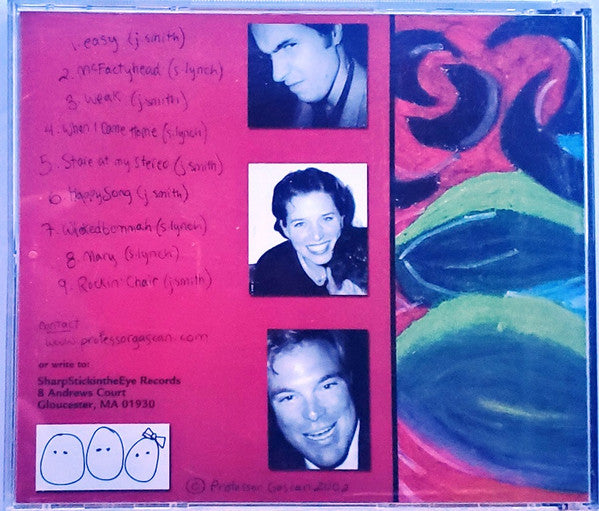 1. easy (j smith)
2. McFactyhead (s. lynch)
3. Weak (j smith)
4. When I Came Home (s. lynch)
5. Stare at my Stereo (j smith)
6 Happy Song (j smith)
7. (s. lynch)
8 Mary (s lynch)
9. Rockin' Chair (j smith)
contact
www.professorgascan.com
or write to:
SharpStickintheEye Records
8 Andrews Court
Gloucester, MA 01930
© Professor Gascan 2002